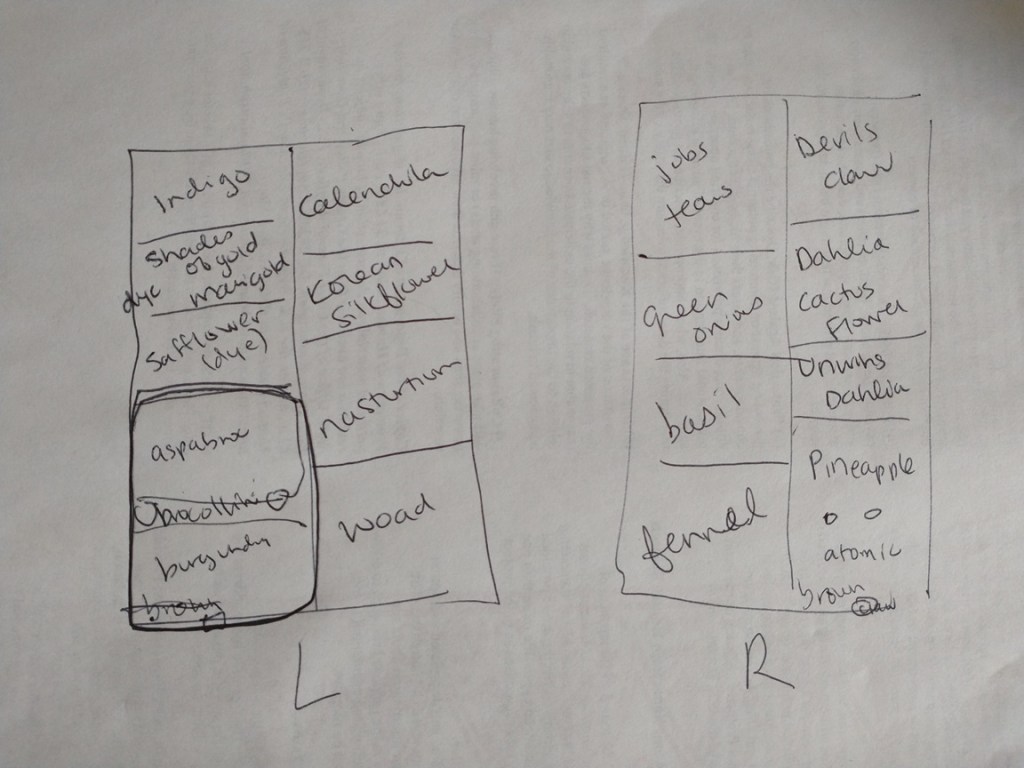 Indigo
shades
of gold
marigold
dye
safflower
(dye)
aspabroc
burgundy
brown
Calendula
Korean
silkflower
nasturtium
woad
L
jobs
tears
green
onions
basil
fennel
Devils
claw
Dahlia
cactus
flower
Unwins
Dahlia
Pineapple
atomic
brown
R